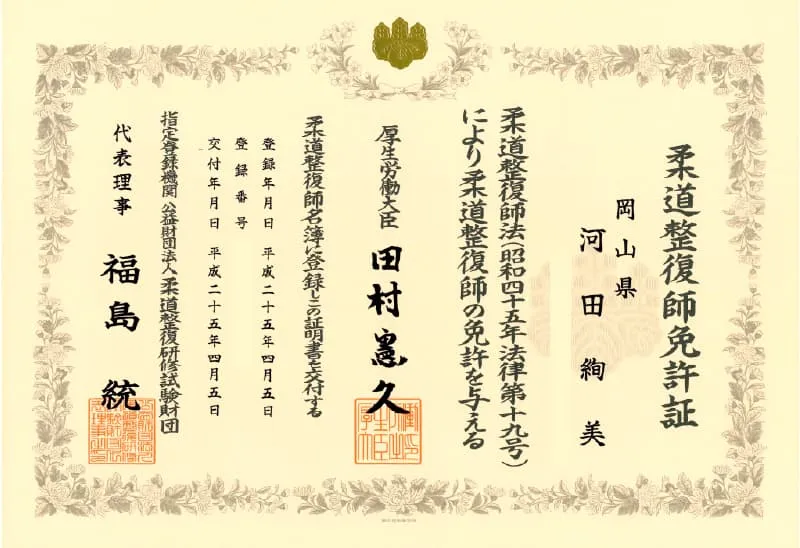 柔道整復師免許証
岡山県
河田絢美
柔道整復師法(昭和四十五年法律第十九号)
により柔道整復師の免許を与える
厚生労働大臣 田村憲久
柔道整復師名簿に登録しこの証明書を交付する
登録年月日 平成二十五年四月五日
登録番号
交付年月日 平成二十五年四月五日
指定登録機関 公益財団法人柔道整復研修試験財団
代表理事 福島統